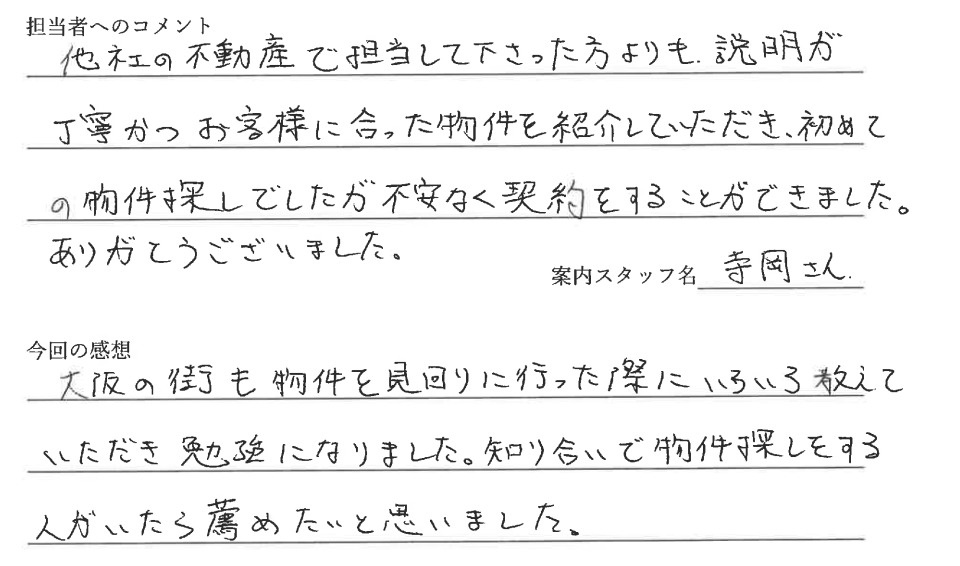 担当者へのコメント
他社の不動産で担当して下さった方よりも、説明が
丁寧かつお客様に合った物件を紹介していただき、初めて
の物件探しでしたが不安なく契約をすることができました。
ありがとうございました。
案内スタッフ名 寺岡さん.
今回の感想
大阪の街も物件を見回りに行った際にいろいろ教えて
いただき勉強になりました。知り合いで物件探しをする
人がいたら薦めたいと思いました。